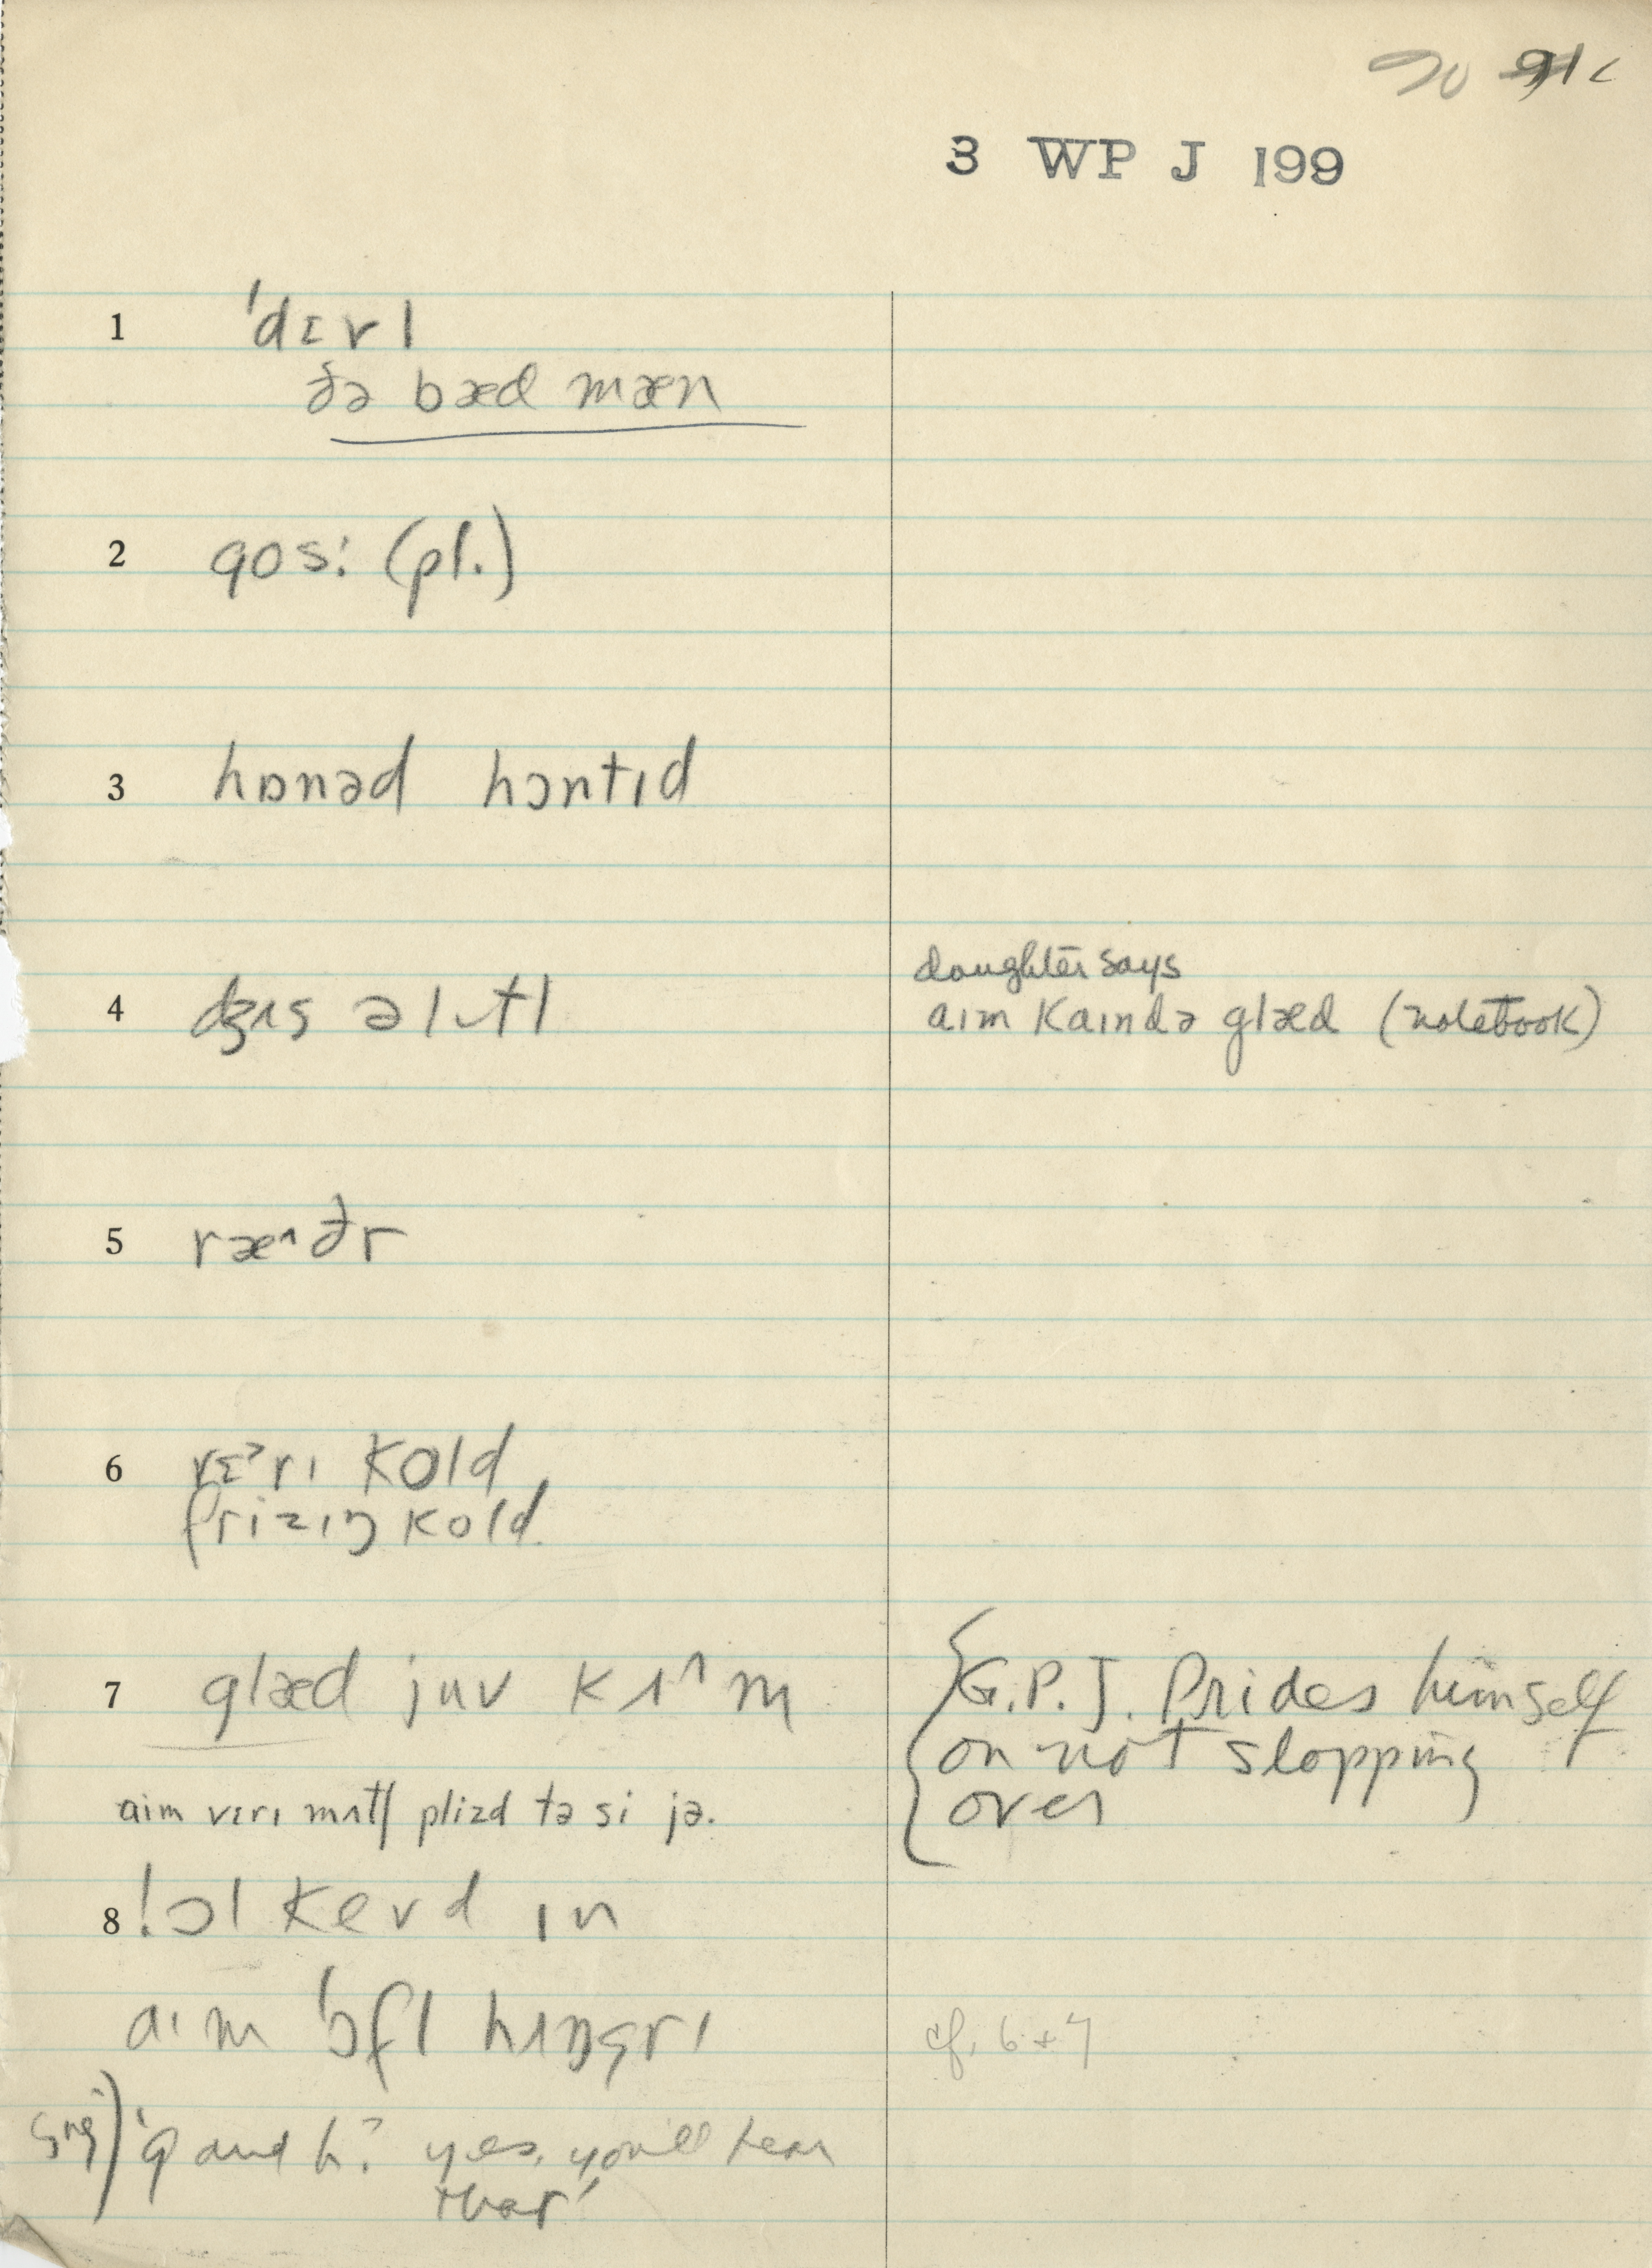 90 91c
3 WP J 199
1 ˈdɪvl
ðə bæd mæn
2 gos: (pl.)
3 hɒnəd hɔntɪd
4 dʒʌs ə lɪtl
daughter says
aɪm kaɪndə glæd (notebook)
5 ræ^ðr
6 vɛʳrɪ kold
frizɪŋ kold
7 glæd juv kʌ^m
{G.P.J. Prides himself
on not slopping
over
aɪm vɛrɪ mʌtʃ plizd tə si jə.
8 !ɔl kevd ɪn
aɪm ˈɔfl hʌŋgrɪ
cf. 6 + 7
g and h? yes, you'll hear
that'